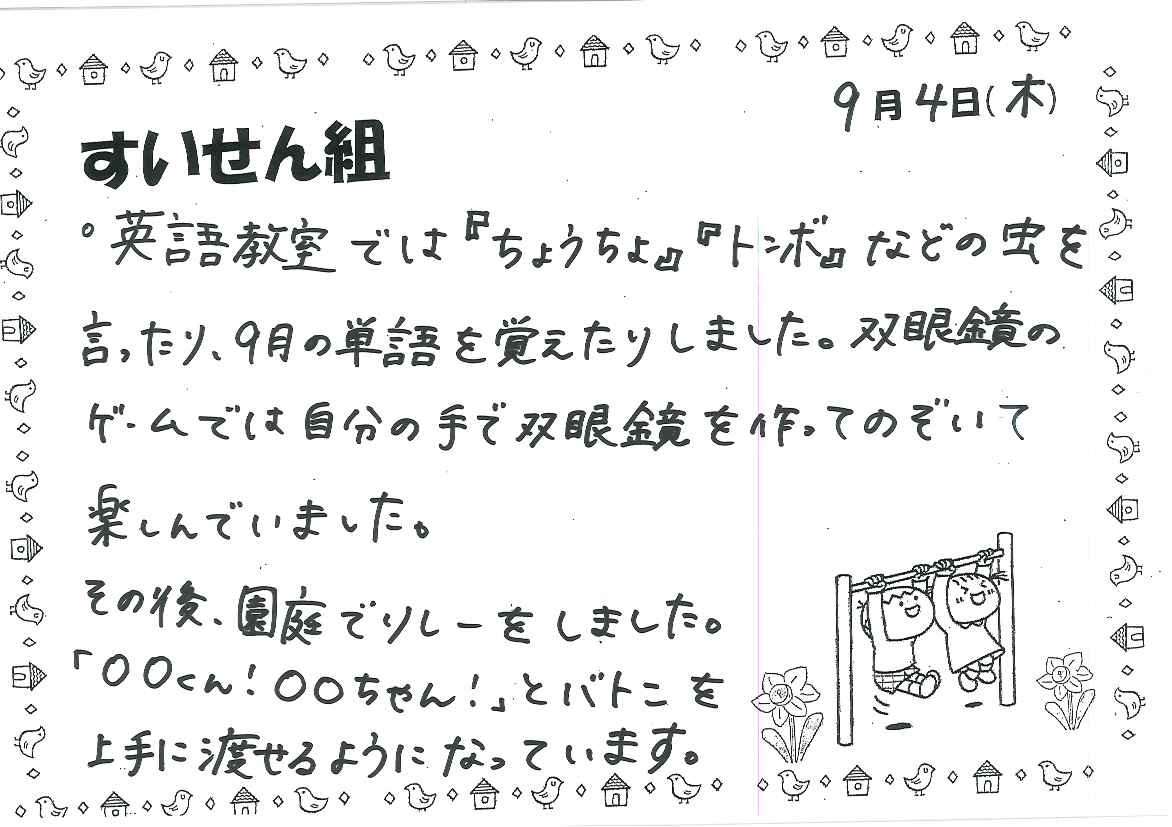 9月4日(木)
すいせん組
○英語教室では『ちょうちょ』『トンボ』などの虫を
言ったり、9月の単語を覚えたりしました。双眼鏡の
ゲームでは自分の手で双眼鏡を作ってのぞいて
楽しんでいました。
その後、園庭でリレーをしました。
「〇〇くん！〇〇ちゃん！」とバトンを
上手に渡せるようになっています。